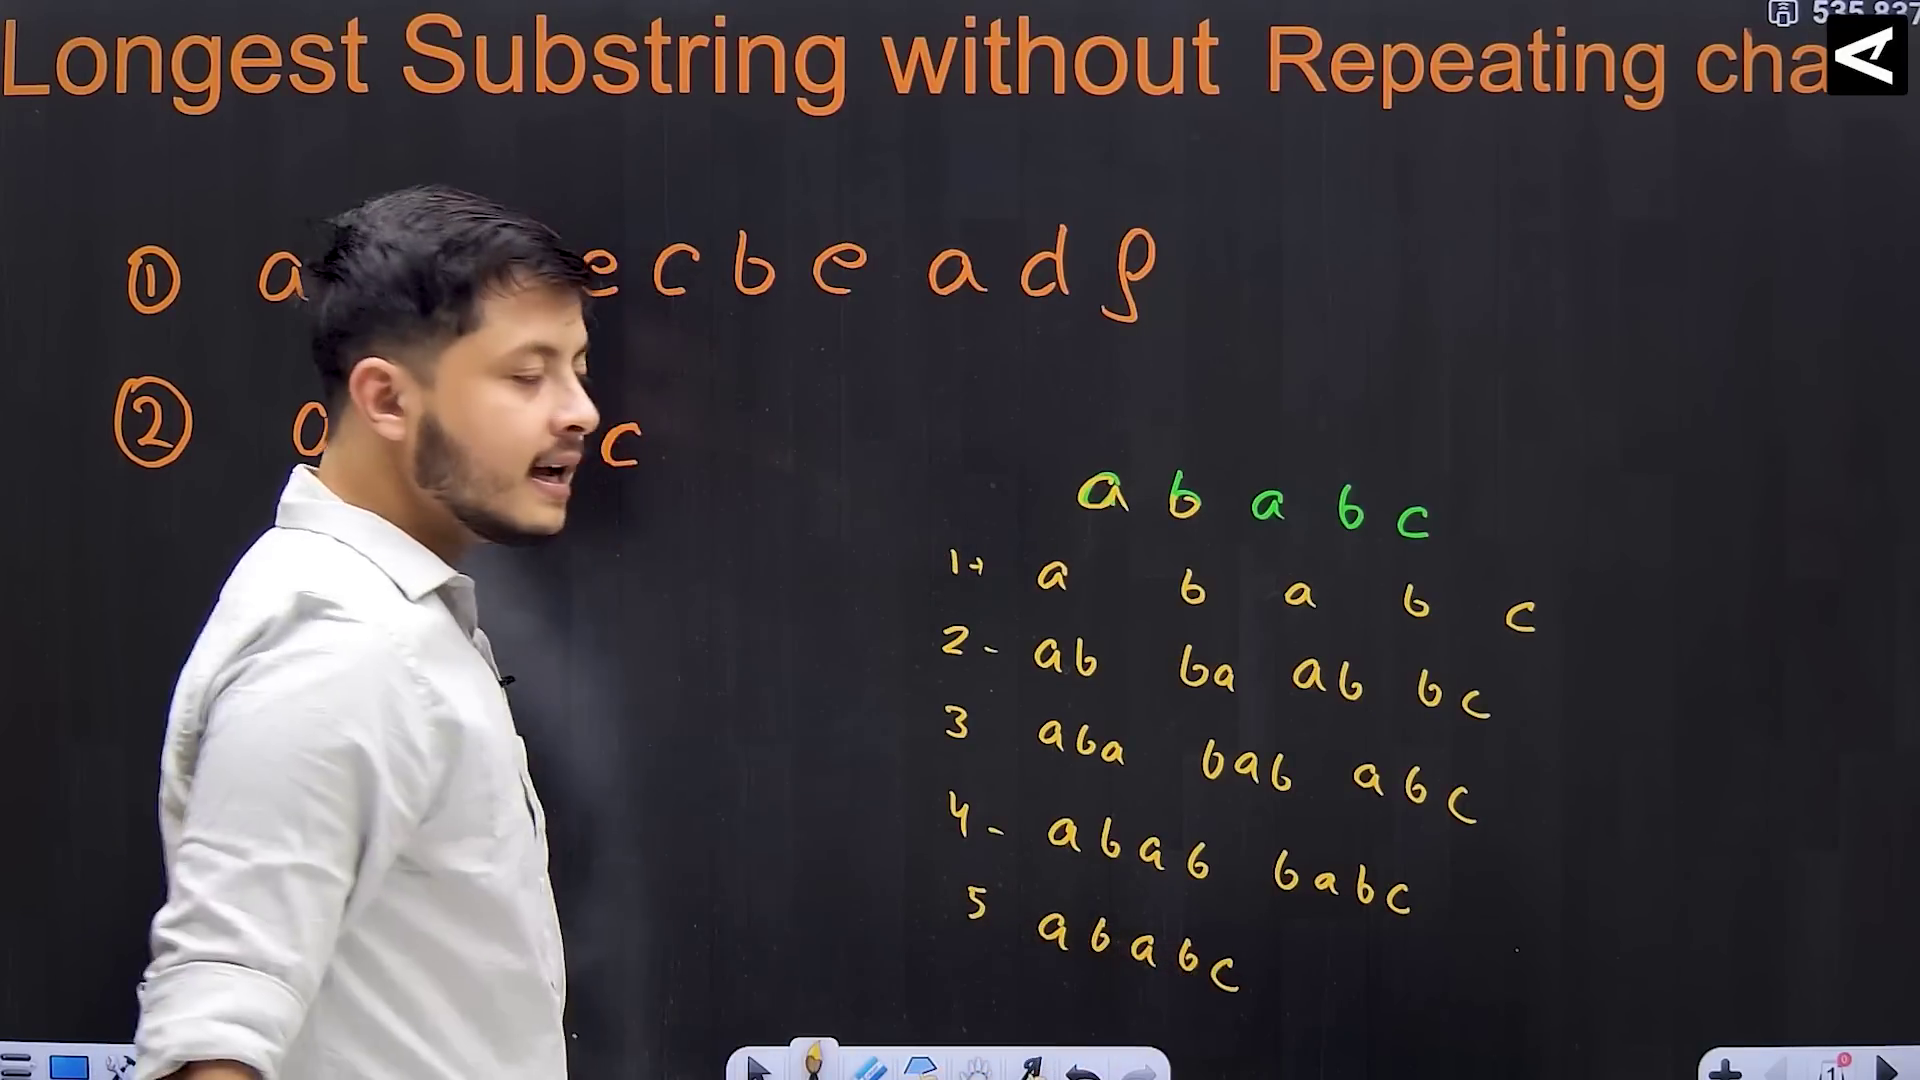 Longest Substring without Repeating cha
① a e c b e a d f
② a c
a b a b c
1→ a b a b c
2- ab ba ab bc
3 aba bab abc
4- abab babc
5 ababc